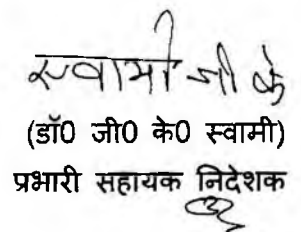 स्वामी जी के
(डॉ0 जी0 के0 स्वामी)
प्रभारी सहायक निदेशक